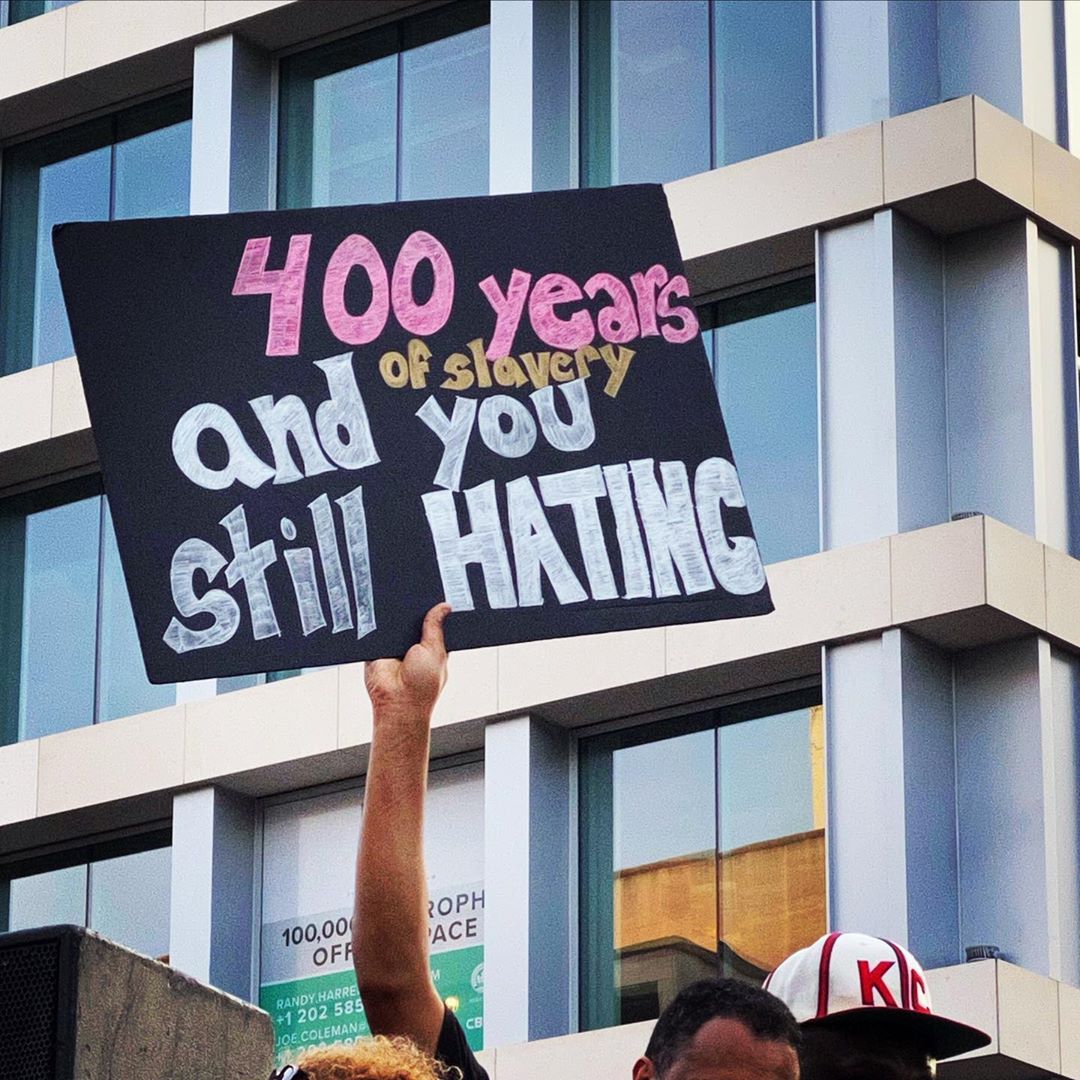 400 years
of slavery
and you
still HATING
100,00
OF PACE
RANDY.HARRE
+1 202 585
JOE.COLEMAN@
CB
KC